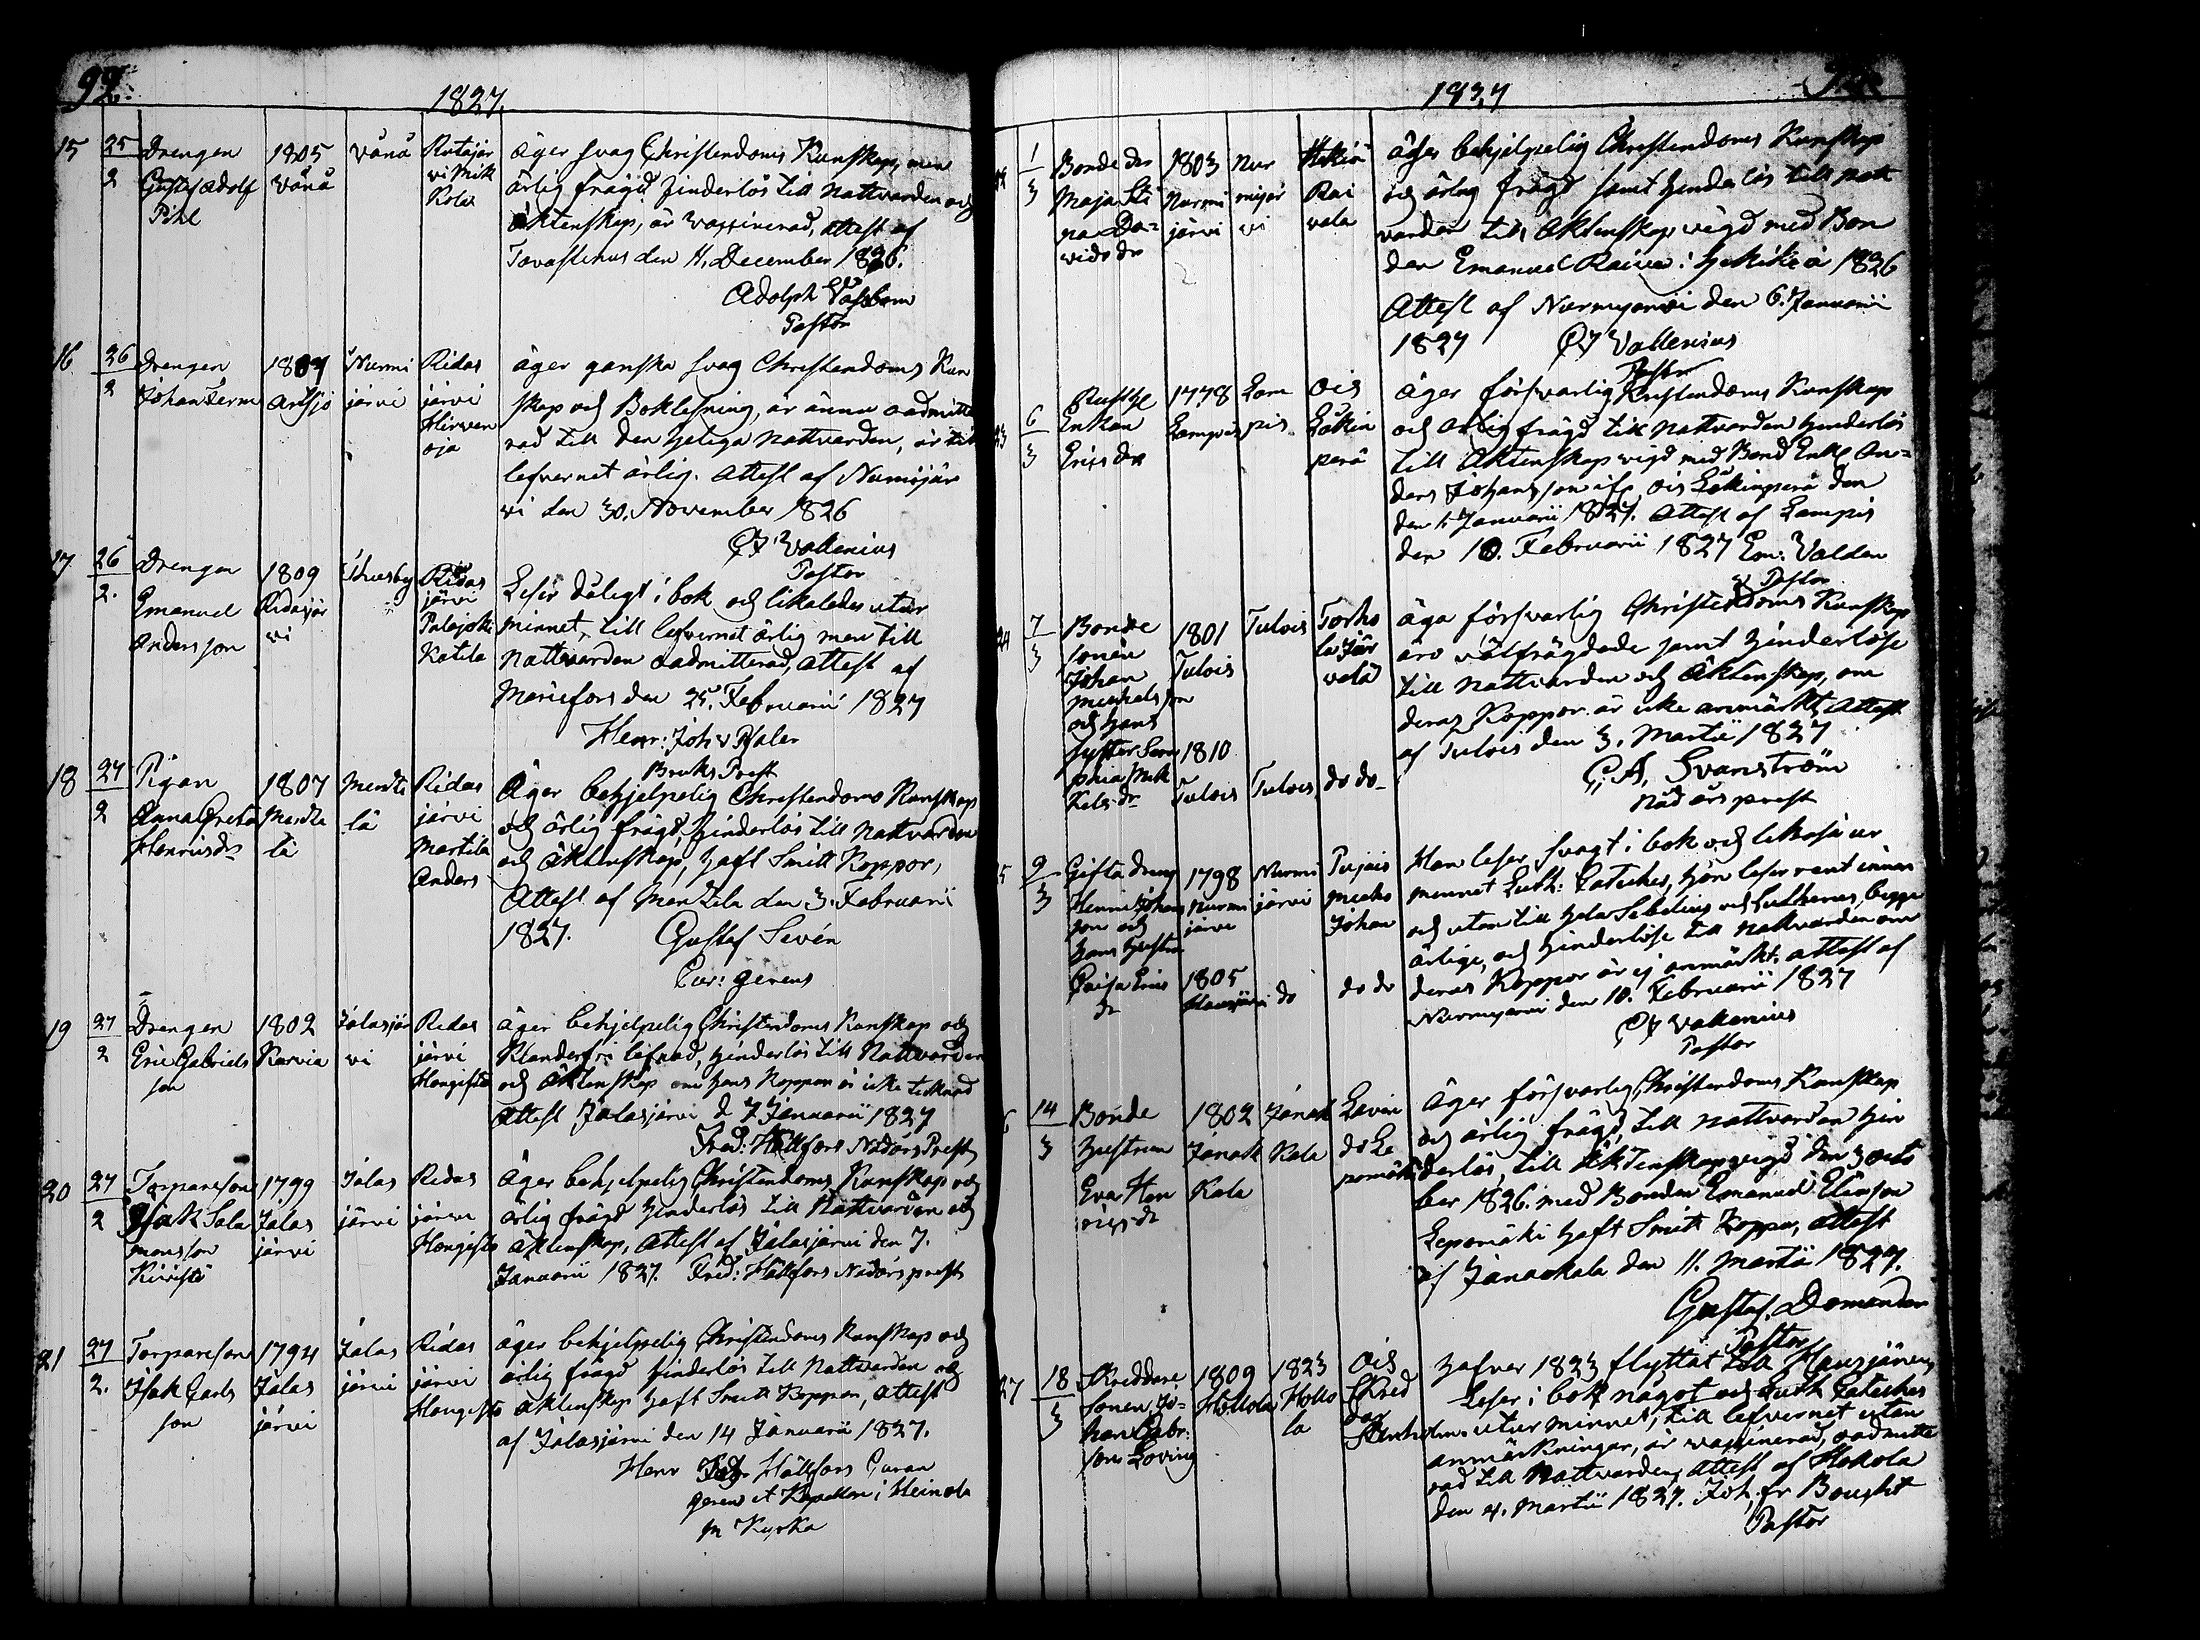 92.
1827.
15 25/2 Drengen Gustaf Adolf Pihl
1805 Vånå
Vånå
Äger svag Christendoms Kunskap, men
ärlig frägd hinderlös till Nattvarden och
Äktenskap, är vaccinerad, attest af
Tavastehus den 11. December 1826.
Adolph
Pastor
16 26/2 Drengen Johan
Nurmi järvi
Ridas järvi Hirven oja
äger ganska svag Christendoms Kun
skap och Boklesning, är ännu oadmitte
rad till den heliga Nattvarden, är till
lefvernet ärlig. Attest af Nurmijär
vi den 30. November 1826
Vallenius
Pastor
17 26/2. Drengen Emanuel Andersson
1809 Ridasjär vi
Thusby
Ridas järvi Palojoki Katila
Leser dåligt i bok och likaledes utur
minnet, till lefvernet ärlig men till
Nattvarden oadmitterad, attest af
Mariefors den 25. Februarii 1827
Henr: Joh:
Bruks Prest
18 27/2 Pigan Anna Greta Henricsdr
1807
Ridas järvi Martila Anders
Äger behjelpelig Christendoms Kunskap
och ärlig frägd, hinderlös till Nattvarden
och Äktenskap, haft Smitt Koppor,
Attest af Mentzila den 3. Februarii
1827. Gustaf Sevén
Cur: gerens
19 27/2 Drengen Eric Gabriels son
1802 Karvia
Jalasjär vi
Ridas järvi Hongisto
äger behjelpelig Christendoms Kunskap och
Klanderfri lefnad, hinderlös till Nattvarden
och Äktenskap om hans Koppor är icke
Attest Jalasjärvi d 7 Januarii 1827
Fred: Hällfors Nådårs Prest
20 27/2 Torpareson Isak Salo monsson
1799 Jalas järvi
Jalas järvi
Ridas järvi Hongisto
Äger behjelpelig Christendoms Kunskap och
ärlig frägd hinderlös till Nattvarden och
Äktenskap, Attest af Jalasjärvi den 7.
Januarii 1827. Fred: Hällfors Nådårsprest
21 27/2. Torpareson Isak Carls son
1794 Jalas järvi
Jalas järvi
Ridas järvi Hongisto
äger behjelpelig Christendoms Kunskap och
ärlig frägd hinderlös till Nattvarden och
Äktenskap haft Smitt Koppor, Attest
af Jalasjärvi den 14 Januarii 1827.
Hällfors
i Heinola
Kyrka
1827
1/3 Bonde dr Maja Sti na Da= vids dr
1803 Nurmi järvi
Nur mijär vi
äger behjelpelig Christendoms Kunskap
och ärlig frägd samt hinderlös till Natt
varden till Äktenskap vigd med Bon
den Emanuel 1826
Attest af Nurmijarvi den 6. Januarii
1827 Vallenius
Pastor
23 6/3 Enkan Erics dr
1778 Lampis
Lam pis
Ois
äger försvarlig Kristendoms Kunskap
och ärlig frägd till Nattvarden hinderlös
till Äktenskap vigd med Bond Enkl An=
ders Johansson ifr Ois den
den 1. Januarii 1827. Attest af Lampis
den 10. Februarii 1827 Em: Valden
Pastor
24 7/3 Bonde sonen Johan Michelsson och hans syster
1801 Tulois
1810 Tulois
Tulois
Tulois
do do
äga försvarlig Christendoms Kunskap
äro välfrägdade samt hinderlöse
till Nattvarden och Äktenskap, om
deras Koppor är icke anmärkt, Attest
af Tulois den 3. Martii 1827
C. A. Svanström
Nådårsprest
9/3 Gifta dreng Henric Johans son och hans hustru Caisa Erics dr
1798 Nurmi järvi
1805
Nurmi järvi
do
Johan
do do
Han leser svagt i bok och likaså ur
minnet Luth: Cateches, hon leser rent innan
och utan till hela Sebelius och Lutherus, bägge
ärlige, och hinderlöse till Nattvarden om
deras Koppor är ej anmärkt. attest af
Nurmijarvi den 10. Februarii 1827
Vallenius
Pastor
14/3 Bonde hustrun Eva Hen rics dr
1802 Janak Kala
Janak Kala
äger försvarlig Christendoms Kunskap
och ärlig frägd, till Nattvarden hin
derlös, till Äktenskap vigd den 3 octo
ber 1826. med Bonden Emanuel Eliæson
Lepomäki haft Smitt Koppor, Attest
af Janackala den 11. Martii 1827.
Gustaf. Domander
Pastor
27 18/3 Skreddare Sonen, Jo= han Gabr: son Loving
1809 Hollola
1823 Hollo la
Ois Skred dar
hafver 1823 flyttat till Hausjärvi,
Leser i bok något och Luth Cateches
utur minnet, till lefvernet utan
anmärkningar, är vaccinerad, oadmitte
rad till Nattvarden, Attest af Hollola
den 4. Martii 1827. Joh. Fr Bought
Pastor